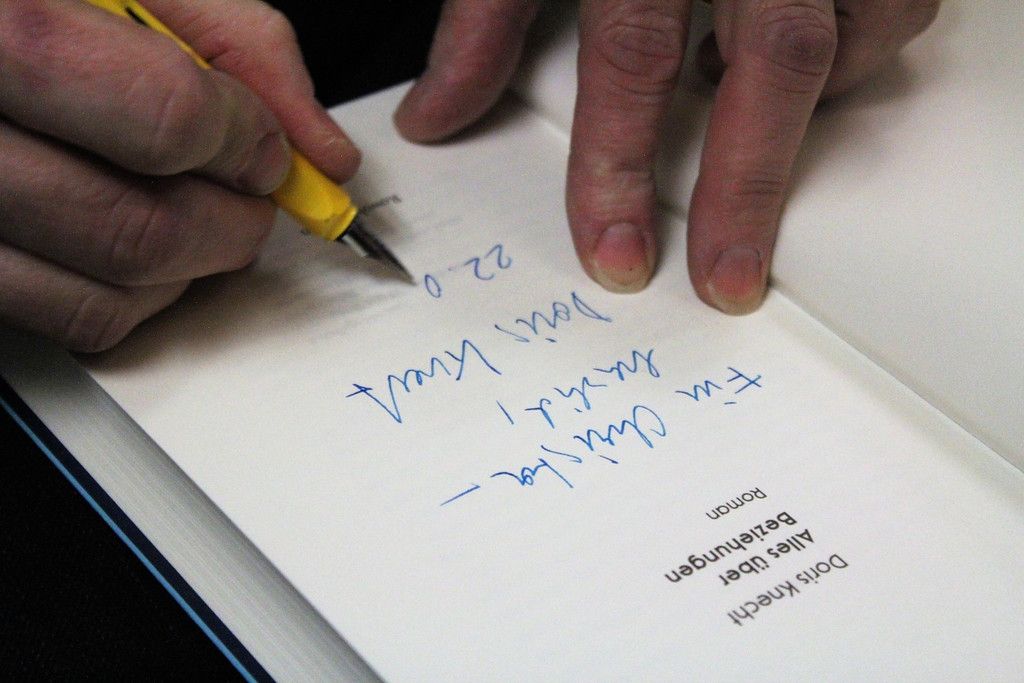 Doris Knecht
Alles über
Beziehungen
Roman
Für Christa –
herzlich,
Doris Knecht
22.0